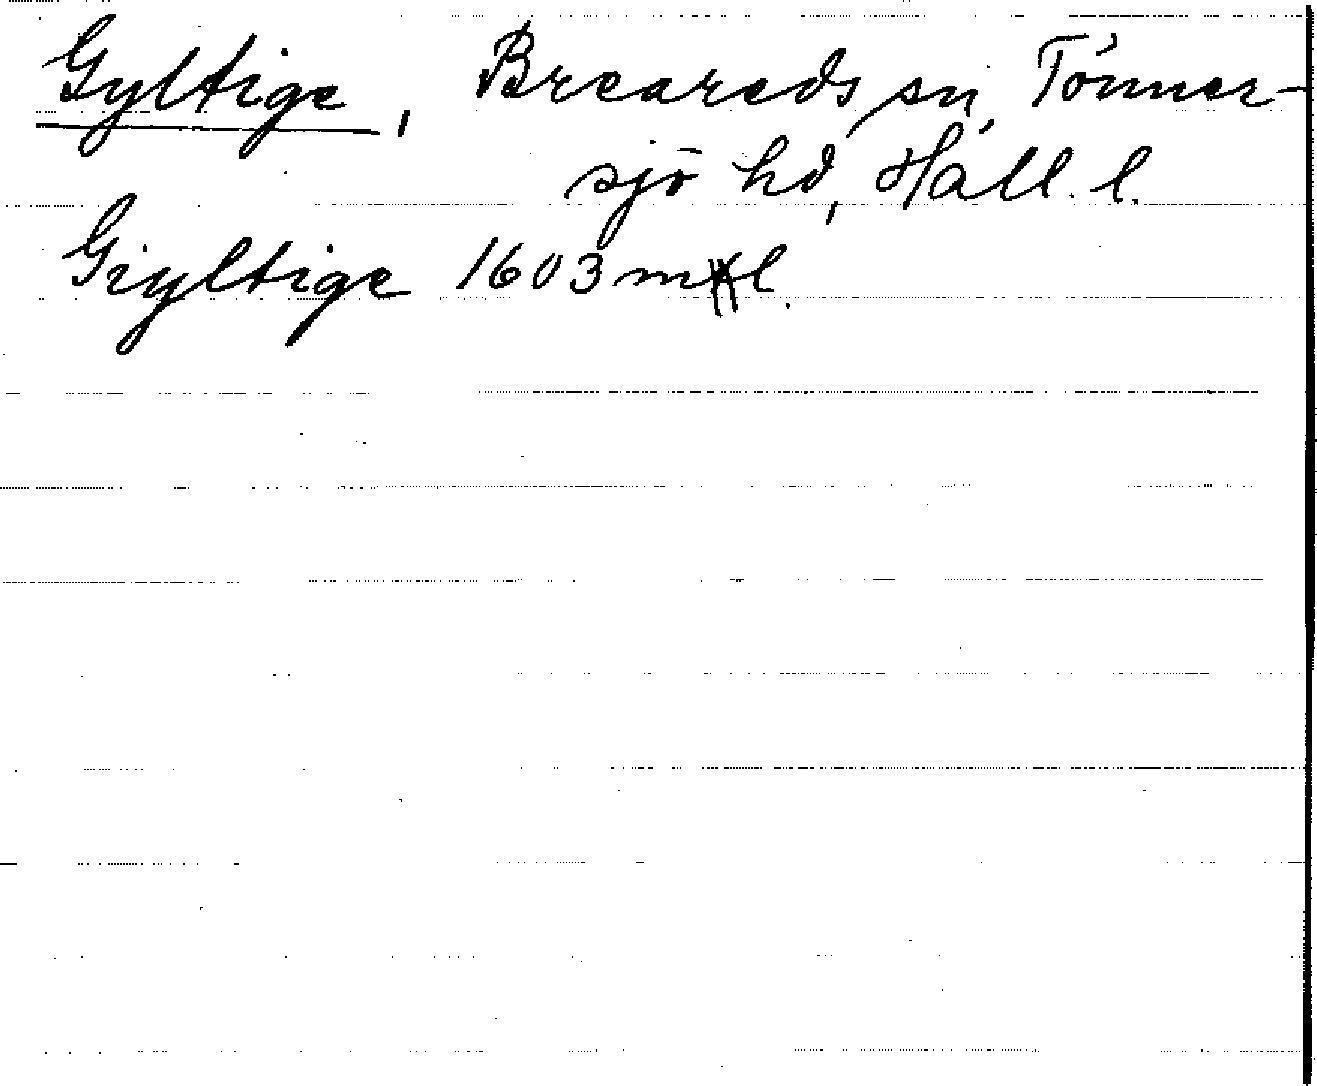 Gyltige, Breareds sn, Tönner-
sjö hd, Hall. l.
Giyltige 1603 ml.